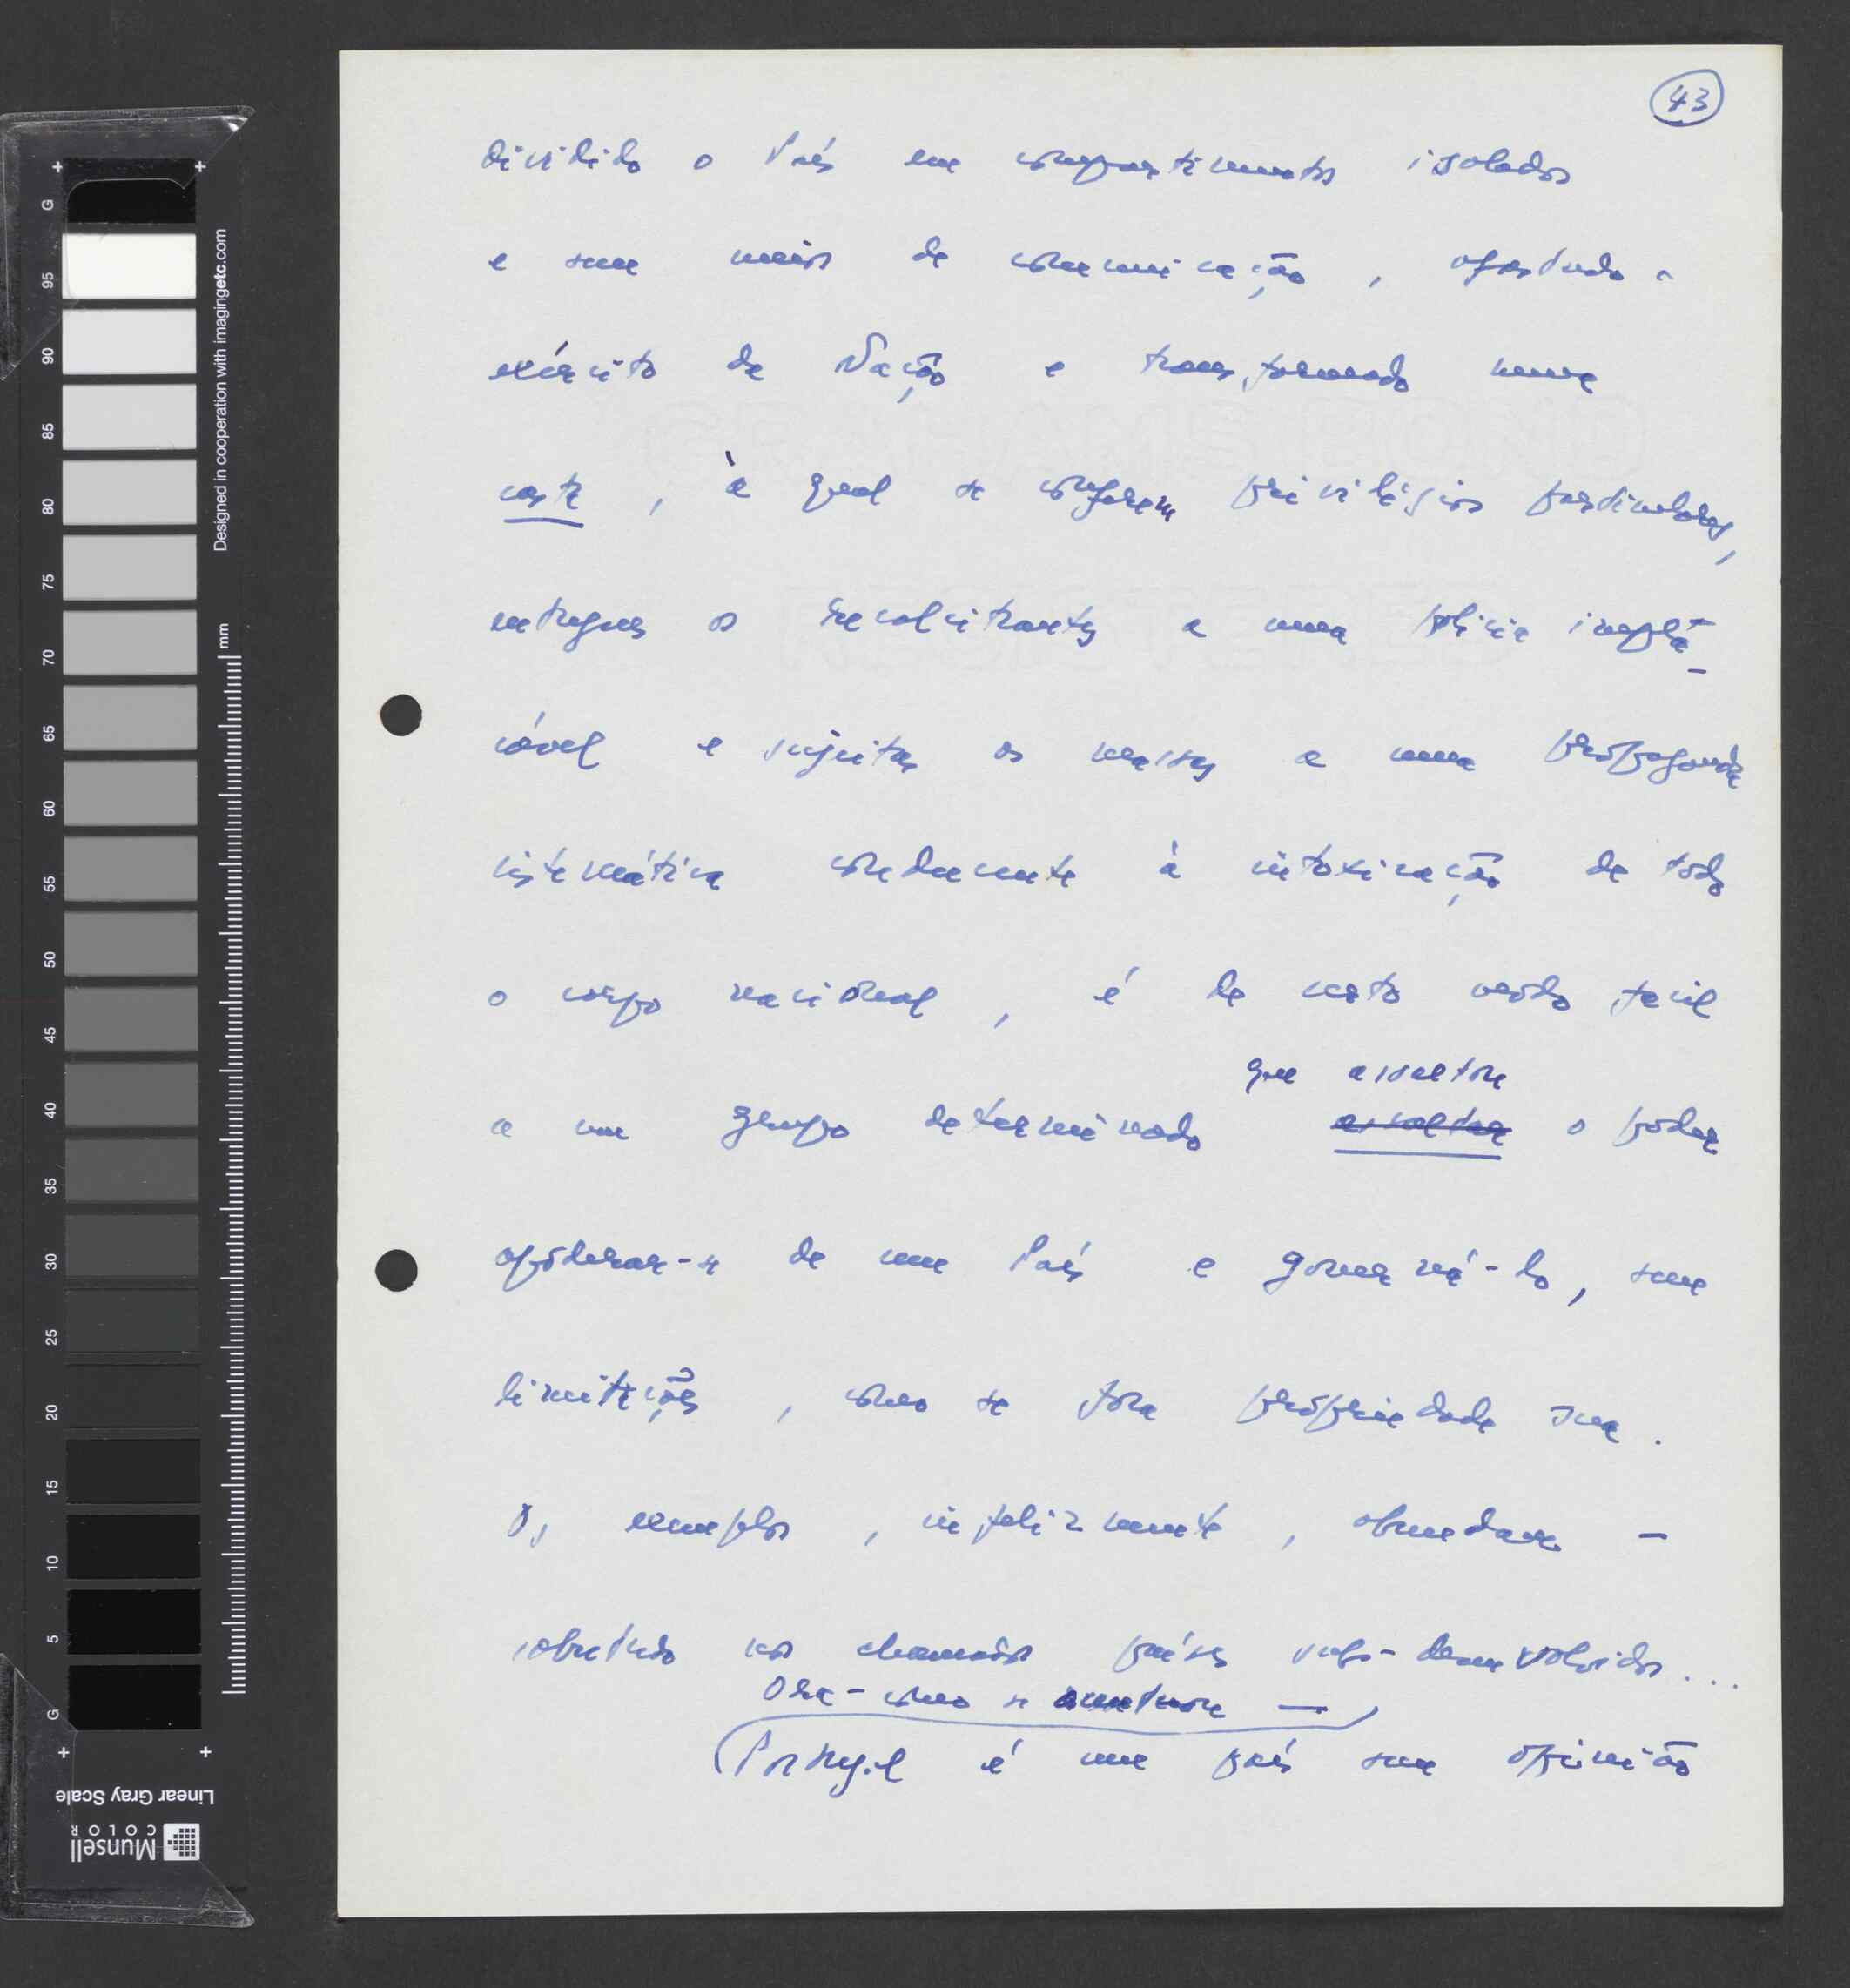 43
dividido o País em compartimentos isolados
e sem meios de comunicação, afastado o
exército da Nação e transformado numa
casta, à qual se conferem privilégios particulares,
entregues os recalcitrantes a uma polícia implá-
cável e sujeitas as massas a uma propaganda
sistemática conducente à intoxicação de todo
o corpo nacional, é de certo modo fácil
que assaltou
a um grupo determinado assaltar o poder
apoderar-se de um País e governá-lo, sem
limitações, como se fora propriedade sua.
Os exemplos, infelizmente, abundam -
sobretudo nos chamados países sub-desenvolvidos...
Ora - como se
Portugal é um país sem opinião
G
95
90
85
80
75
70
65
60
55
50
45
40
35
30
25
20
15
10
5
G
mm
Designed in cooperation with imagingetc.com
Linear Gray Scale
Munsell
COLOR